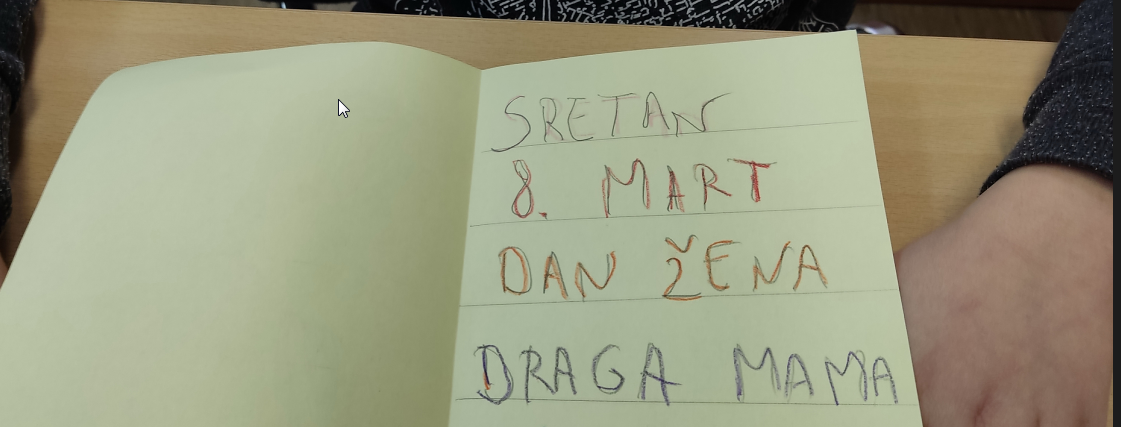 SRETAN
8. MART
DAN ŽENA
DRAGA MAMA